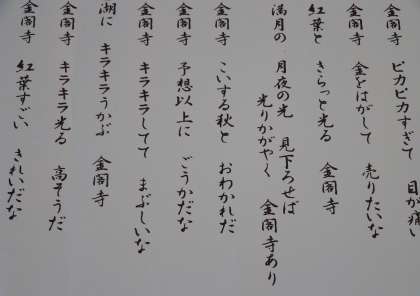 金閣寺 ピカピカすぎて 目が痛い
金閣寺 金をはがして 売りたいな
紅葉と きらっと光る 金閣寺
満月の 月夜の光 見下ろせば
光りかがやく 金閣寺あり
金閣寺 こいする秋と おわかれだ
金閣寺 予想以上に ごうかだな
金閣寺 キラキラしてて まぶしいな
湖に キラキラうかぶ 金閣寺
金閣寺 キラキラ光る 高そうだ
金閣寺 紅葉すごい きれいだな